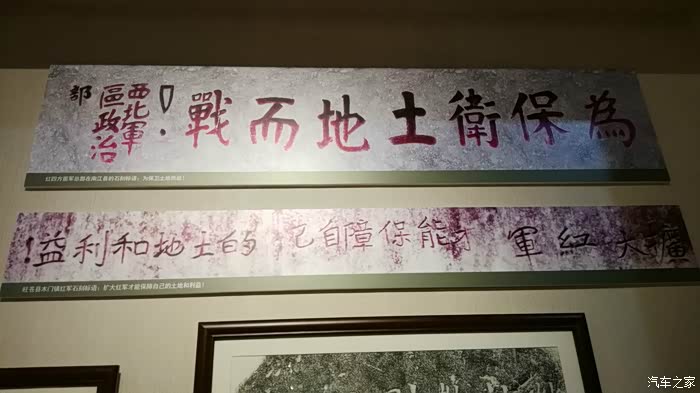 為保衛土地而戰!
西北軍區政治部
红四方面军总部在南江县的石刻标语:为保卫土地而战!
擴大紅軍才能保障自己的土地和利益!
旺苍县木门镇红军石刻标语:扩大红军才能保障自己的土地和利益!
汽车之家